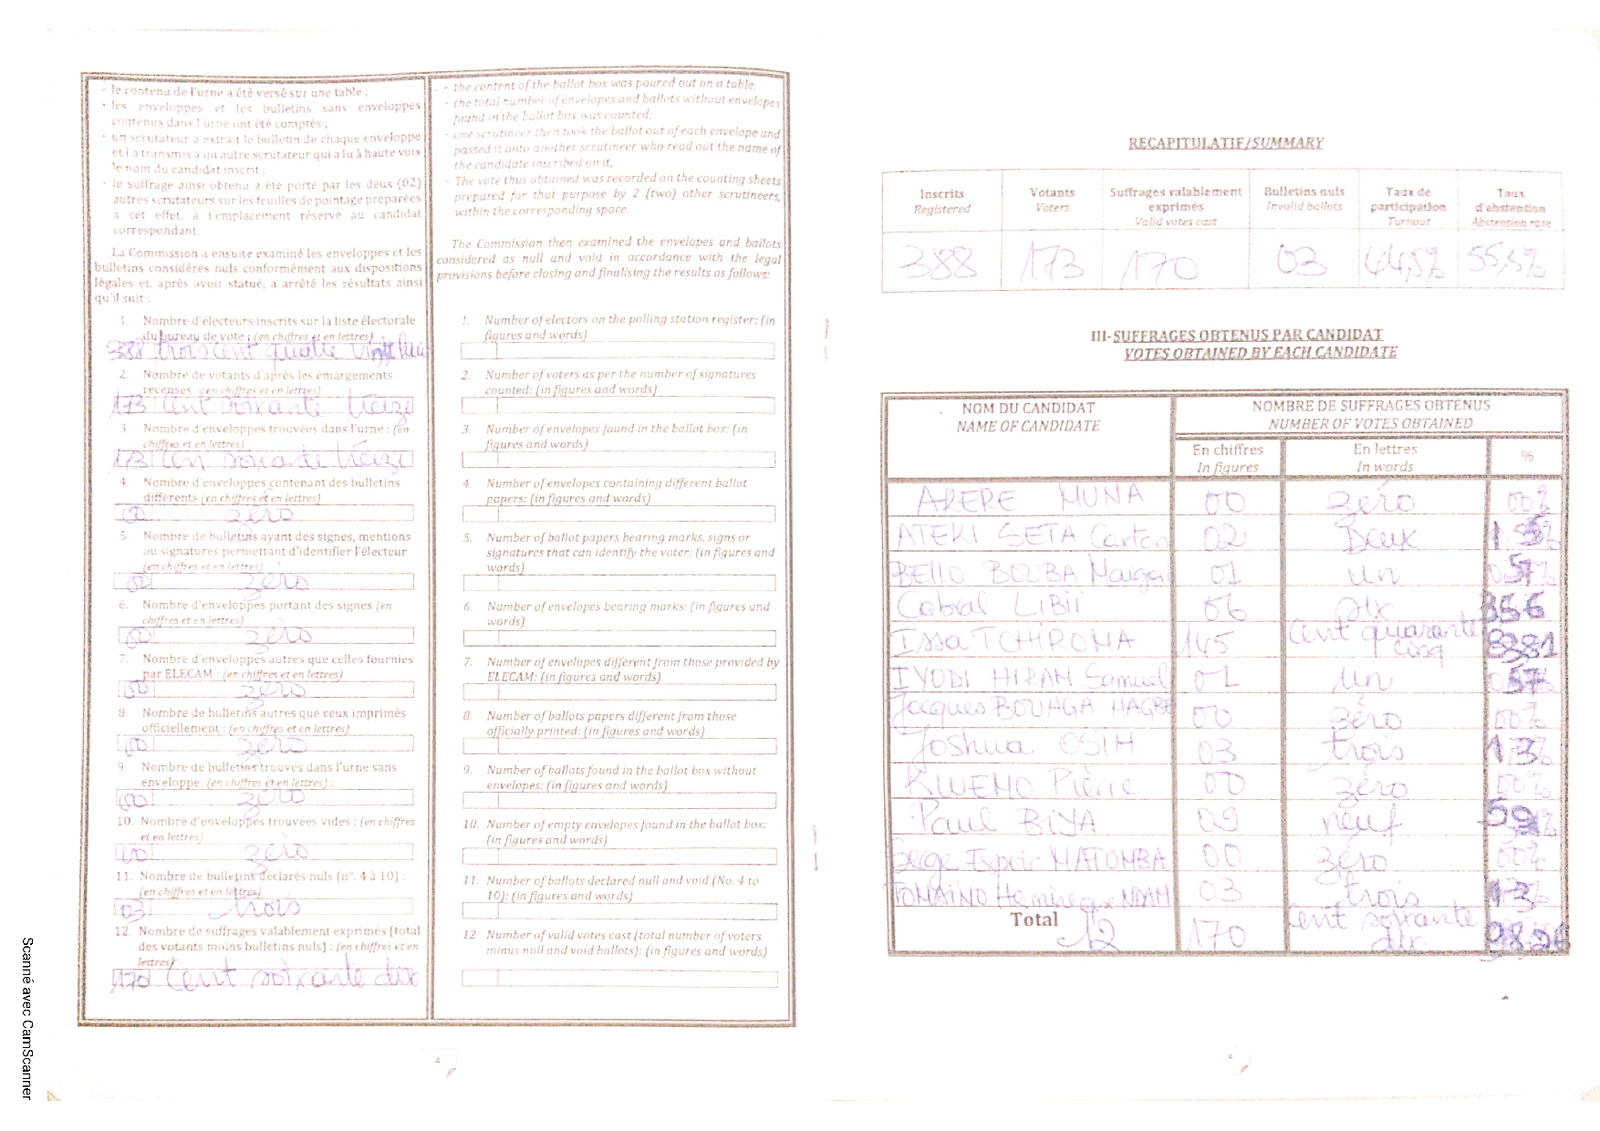 - le contenu de l'urne a été versé sur une table ;
- les enveloppes et les bulletins sans enveloppes
contenus dans l'urne ont été comptés ;
- un scrutateur a extrait le bulletin de chaque enveloppe
et l'a transmis à un autre scrutateur qui a lu à haute voix
le nom du candidat inscrit ;
- le suffrage ainsi obtenu a été porté par les deux (02)
autres scrutateurs sur les feuilles de pointage préparées
à cet effet, à l'emplacement réservé au candidat
correspondant.
La Commission a ensuite examiné les enveloppes et les
bulletins considérés nuls conformément aux dispositions
légales et, après avoir statué, a arrêté les résultats ainsi
qu'il suit :
1. Nombre d'électeurs inscrits sur la liste électorale
du bureau de vote : (en chiffres et en lettres)
388 trois cent quatre vingt huit
2. Nombre de votants d'après les émargements
recensés (en chiffres et en lettres)
173 cent soixante treize
3 Nombre d'enveloppes trouvées dans l'urne : (en
chiffres et en lettres)
173 cen soixante treize
4 Nombre d'enveloppes contenant des bulletins
différents (en chiffres et en lettres)
00 zéro
5. Nombre de bulletins ayant des signes, mentions
ou signatures permettant d'identifier l'électeur
(en chiffres et en lettres)
00 zéro
6. Nombre d'enveloppes portant des signes (en
chiffres et en lettres)
00 zéro
7. Nombre d'enveloppes autres que celles fournies
par ELECAM : (en chiffres et en lettres)
00 zéro
8. Nombre de bulletins autres que ceux imprimés
officiellement : (en chiffres et en lettres)
00 zéro
9. Nombre de bulletins trouvés dans l'urne sans
enveloppe (en chiffres et en lettres) :
00 zéro
10. Nombre d'enveloppes trouvées vides : (en chiffres
et en lettres)
00 zéro
11. Nombre de bulletins déclarés nuls (n°. 4 à 10) :
(en chiffres et en lettres)
03 trois
12. Nombre de suffrages valablement exprimés (total
des votants moins bulletins nuls) : (en chiffres et en
lettres)
170 cent soixante dix
- the content of the ballot box was poured out on a table;
- the total number of envelopes and ballots without envelopes
found in the ballot box was counted;
- one scrutineer then took the ballot out of each envelope and
passed it onto another scrutineer who read out the name of
the candidate inscribed on it;
- The vote thus obtained was recorded on the counting sheets
prepared for that purpose by 2 (two) other scrutineers,
within the corresponding space.
The Commission then examined the envelopes and ballots
considered as null and void in accordance with the legal
provisions before closing and finalising the results as follows:
1. Number of electors on the polling station register: (in
figures and words)
2. Number of voters as per the number of signatures
counted: (in figures and words)
3. Number of envelopes found in the ballot box: (in
figures and words)
4. Number of envelopes containing different ballot
papers: (in figures and words)
5. Number of ballot papers bearing marks, signs or
signatures that can identify the voter: (in figures and
words)
6. Number of envelopes bearing marks: (in figures and
words)
7. Number of envelopes different from those provided by
ELECAM: (in figures and words)
8. Number of ballots papers different from those
officially printed: (in figures and words)
9. Number of ballots found in the ballot box without
envelopes: (in figures and words)
10. Number of empty envelopes found in the ballot box:
(in figures and words)
11. Number of ballots declared null and void (No. 4 to
10): (in figures and words)
12 Number of valid votes cast (total number of voters
minus null and void ballots): (in figures and words)
4
RECAPITULATIF/SUMMARY
Inscrits Votants Suffrages valablement exprimés Bulletins nuls Taux de participation Taux d'abstention
Registered Voters Valid votes cast Invalid ballots Turnout Abstention rate
388 173 170 03 44,5% 55,5%
III- SUFFRAGES OBTENUS PAR CANDIDAT
VOTES OBTAINED BY EACH CANDIDATE
NOM DU CANDIDAT NOMBRE DE SUFFRAGES OBTENUS
NAME OF CANDIDATE NUMBER OF VOTES OBTAINED
En chiffres En lettres %
In figures In words
AKERE MUNA 00 zéro 00%
ATEKI SETA Caxton 02 Deux
BELLO BOUBA Maigari 01 un
Cabral LIBII 06 six
Issa TCHIROMA 145 cent quarante cinq
IYODI HIRAM Samuel 01 un
Jacques BOUHGA HAGBE 00 zéro 00%
Joshua OSIH 03 trois
KWEMO Pierre 00 zéro 00%
Paul BIYA 09 neuf
Serge Espoir MATOMBA 00 zéro 00%
TOMAINO Hermine NDAM 03 trois
Total 12 170 cent soixante dix
Scanné avec CamScanner